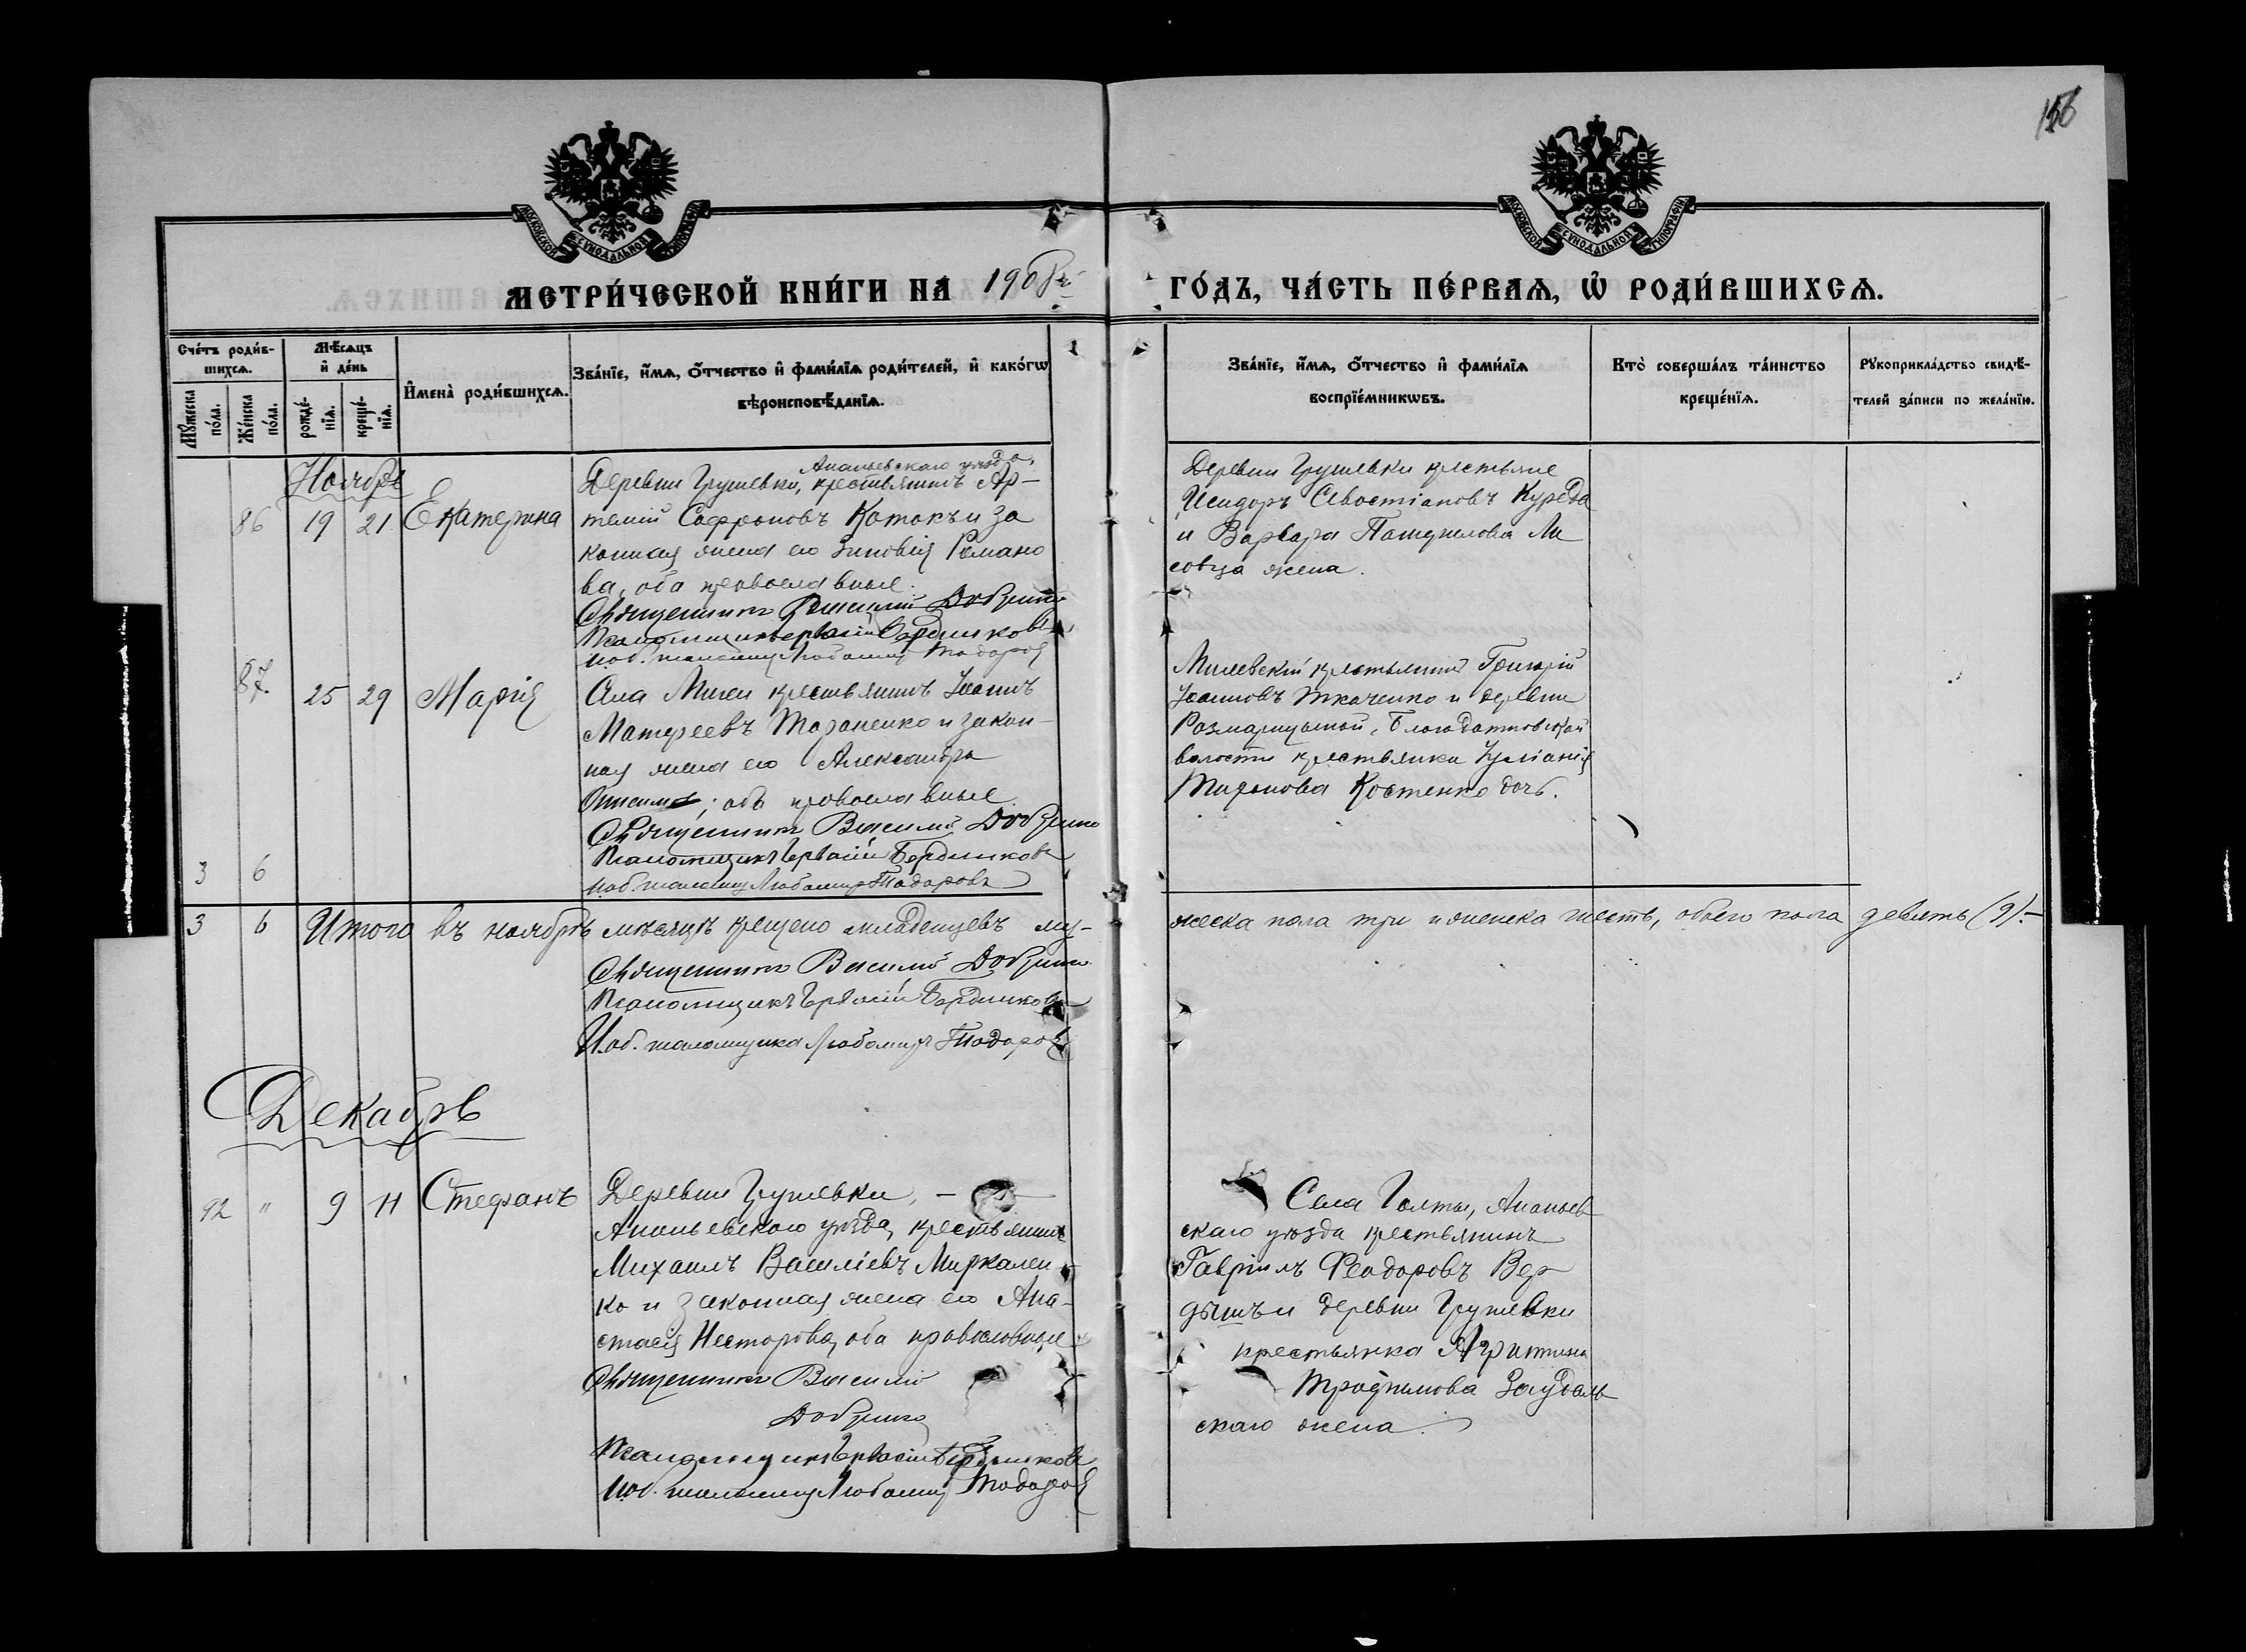 156
МОСКОВСКОЙ СѴНОДАЛЬНОЙ ТИПОГРАФІИ
МОСКОВСКОЙ СѴНОДАЛЬНОЙ ТИПОГРАФІИ
МЕТРИ́ЧЕСКОЙ КНИ́ГИ НА 1908й
ГО́ДЪ, ЧА́СТЬ ПЕ́РВАѦ, Ѡ҆ РОДИ́ВШИХСѦ.
Сче́тъ роди́в-
шихсѧ.
Мꙋ́жеска
по́ла.
Же́нска
по́ла.
Мѣ́сѧцъ
и҆ де́нь
рожде́-
нїѧ.
креще́-
нїѧ.
И҆мена̀ роди́вшихсѧ.
Зва́нїе, и҆́мѧ, ѻ҆́тчество и҆ фами́лїѧ роди́телей, и҆ како́гѡ
вѣроисповѣ́данїѧ.
Зва́нїе, и҆́мѧ, ѻ҆́тчество и҆ фами́лїѧ
воспрїе́мникѡвъ.
Кто̀ соверша́лъ та́инство
креще́нїѧ.
Рꙋкоприкла́дство свидѣ́-
телей за́писи по жела́нїю.
Ноябрь
86 19 21 Екатерина
Деревни Грушевки, Ананьевскаго уѣзда, крестьянинъ Ар-
темій Софроновъ Котокъ и за
конная жена его Зиновія Романо
ва, оба православные.
Священникъ Василій Добрино
Псаломщикъ Гервасій Бердников
И.об. псаломщ. Любомир Тодоров
Деревни Грушевки крестьяне
Исидоръ Севостіановъ Курѣда
и Варвара Памфилова Ли
совца жена.
87. 25 29 Марія
Села Мигеи крестьянинъ Іоаннъ
Матфеевъ Тараненко и закон-
ная жена его Александра
Онисимова; оба православные.
Священникъ Василій Добрино
Псаломщикъ Гервасій Бердников
И.об. псаломщ. Любомир Тодоровъ
3 6
Мигевскій крестьянинъ Григорій
Іоанновъ Ткаченко и деревни
Розмарицыной, Благодатновской
волости крестьянка Уліанія
Тифонова Костенко дочь.
3 6 Итого въ ноябрѣ мѣсяцѣ крещено младенцевъ му-
жеска пола три и женска шесть, обоего пола девять (9).-
Священникъ Василій Добрино
Псаломщикъ Гервасій Бердников
И.об. псаломщика Любомиръ Тодоров
Декабрь
92 " 9 11 Стефанъ
Деревни Грушевки, -
Ананьевскаго уѣзда, крестьянинъ
Михаилъ Василіевъ Миркален
ко и законная жена его Ана-
стасія Несторова, оба православные
Священникъ Василій
Добрино
Псаломщикъ Гервасій Бердников
И.об. псаломщ. Любомир Тодоров
Села Голты, Ананьев
скаго уѣзда крестьянинъ
Гавріилъ Феодоровъ Вер
дышъ и деревни Грушевки
крестьянка Агрипина
Трофимова Загудаль
скаго жена.